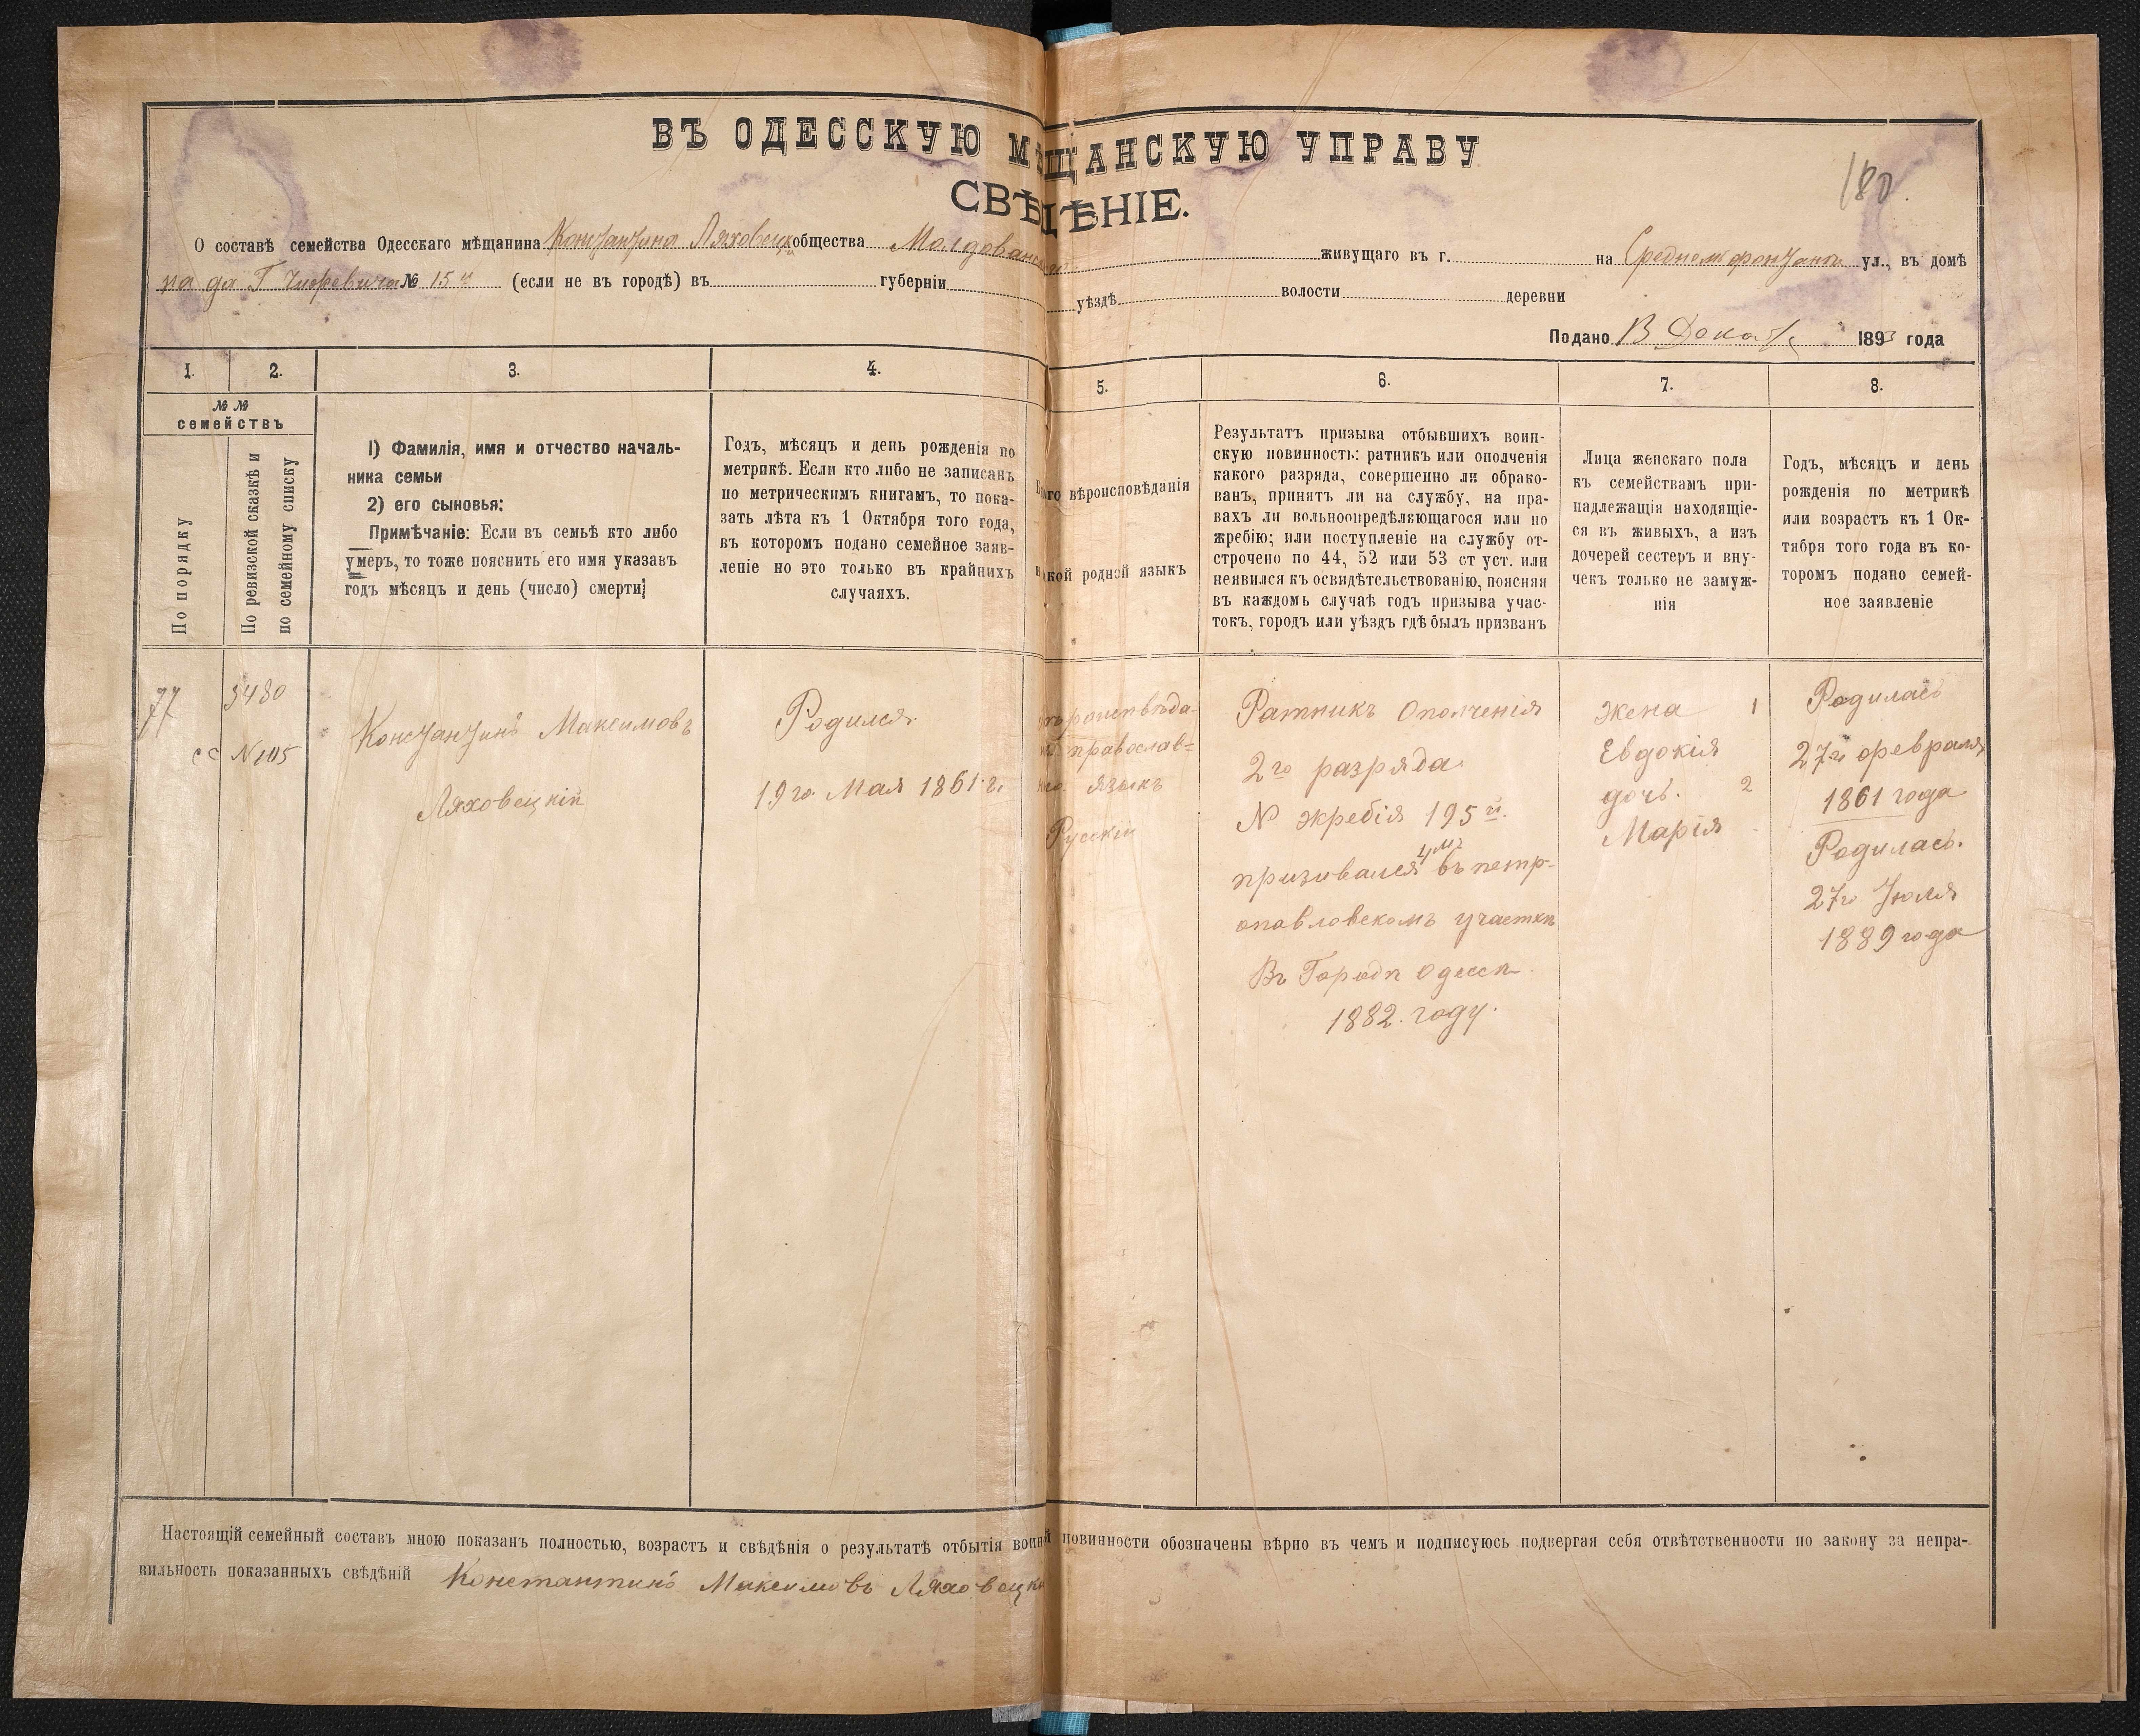 ВЪ ОДЕССКУЮ МѢЩАНСКУЮ УПРАВУ
180
СВѢДѢНІЕ.
О составѣ семейства Одесскаго мѣщанина Константина Ляховецк общества Молдованс живущаго въ г. на Среднемъ фонтанѣ ул., въ домѣ
на да Г № 15й (если не въ городѣ) въ губерніи уѣздѣ волости деревни
Подано 1893 года
1.
2.
3.
4.
5.
6.
7.
8.
№ №
семействъ
По порядку
По ревизской сказкѣ и
по семейному списку
1) Фамилія, имя и отчество началь-
ника семьи
2) его сыновья:
Примѣчаніе: Если въ семьѣ кто либо
умеръ, то тоже пояснить его имя указавъ
годъ мѣсяцъ и день (число) смерти;
Годъ, мѣсяцъ и день рожденія по
метрикѣ. Если кто либо не записанъ
по метрическимъ книгамъ, то пока-
зать лѣта къ 1 Октября того года,
въ которомъ подано семейное заяв-
леніе но это только въ крайнихъ
случаяхъ.
вѣроисповѣданія
родной языкъ
Результатъ призыва отбывшихъ воин-
скую повинность: ратникъ или ополченія
какого разряда, совершенно ли обрако-
ванъ, принятъ ли на службу, на пра-
вахъ ли вольноопредѣляющагося или по
жребію; или поступленіе на службу от-
строчено по 44, 52 или 53 ст уст. или
неявился къ освидѣтельствованію, поясняя
въ каждомь случаѣ годъ призыва учас-
токъ, городъ или уѣздъ гдѣ былъ призванъ
Лица женскаго пола
къ семействамъ при-
надлежащія находящіе-
ся въ живыхъ, а изъ
дочерей сестеръ и вну-
чекъ только не замуж-
нія
Годъ, мѣсяцъ и день
рожденія по метрикѣ
или возрастъ къ 1 Ок-
тября того года въ ко-
торомъ подано семей-
ное заявленіе
77
3480
сс N 105
Константинъ Максимовъ
Ляховецкій
Родился.
19го Мая 1861 г.
православ=
языкъ
Русскій
Ратникъ Ополченія
2го разряда
N жребія 195й.
призивался 4мъ въ петр-
опавловскомъ участкѣ
Въ Городѣ Одессѣ.
1882. году.
Жена 1
Евдокія
дочь. 2
Марія
Родилась
27го февраля
1861 года
Родилась.
27го Іюля
1889 года
Настоящій семейный составъ мною показанъ полностью, возрастъ и свѣдѣнія о результатѣ отбытія воин повинности обозначены вѣрно въ чемъ и подписуюсь подвергая себя отвѣтственности по закону за непра-
вильность показанныхъ свѣдѣній Константинъ Максимовъ Ляховецки